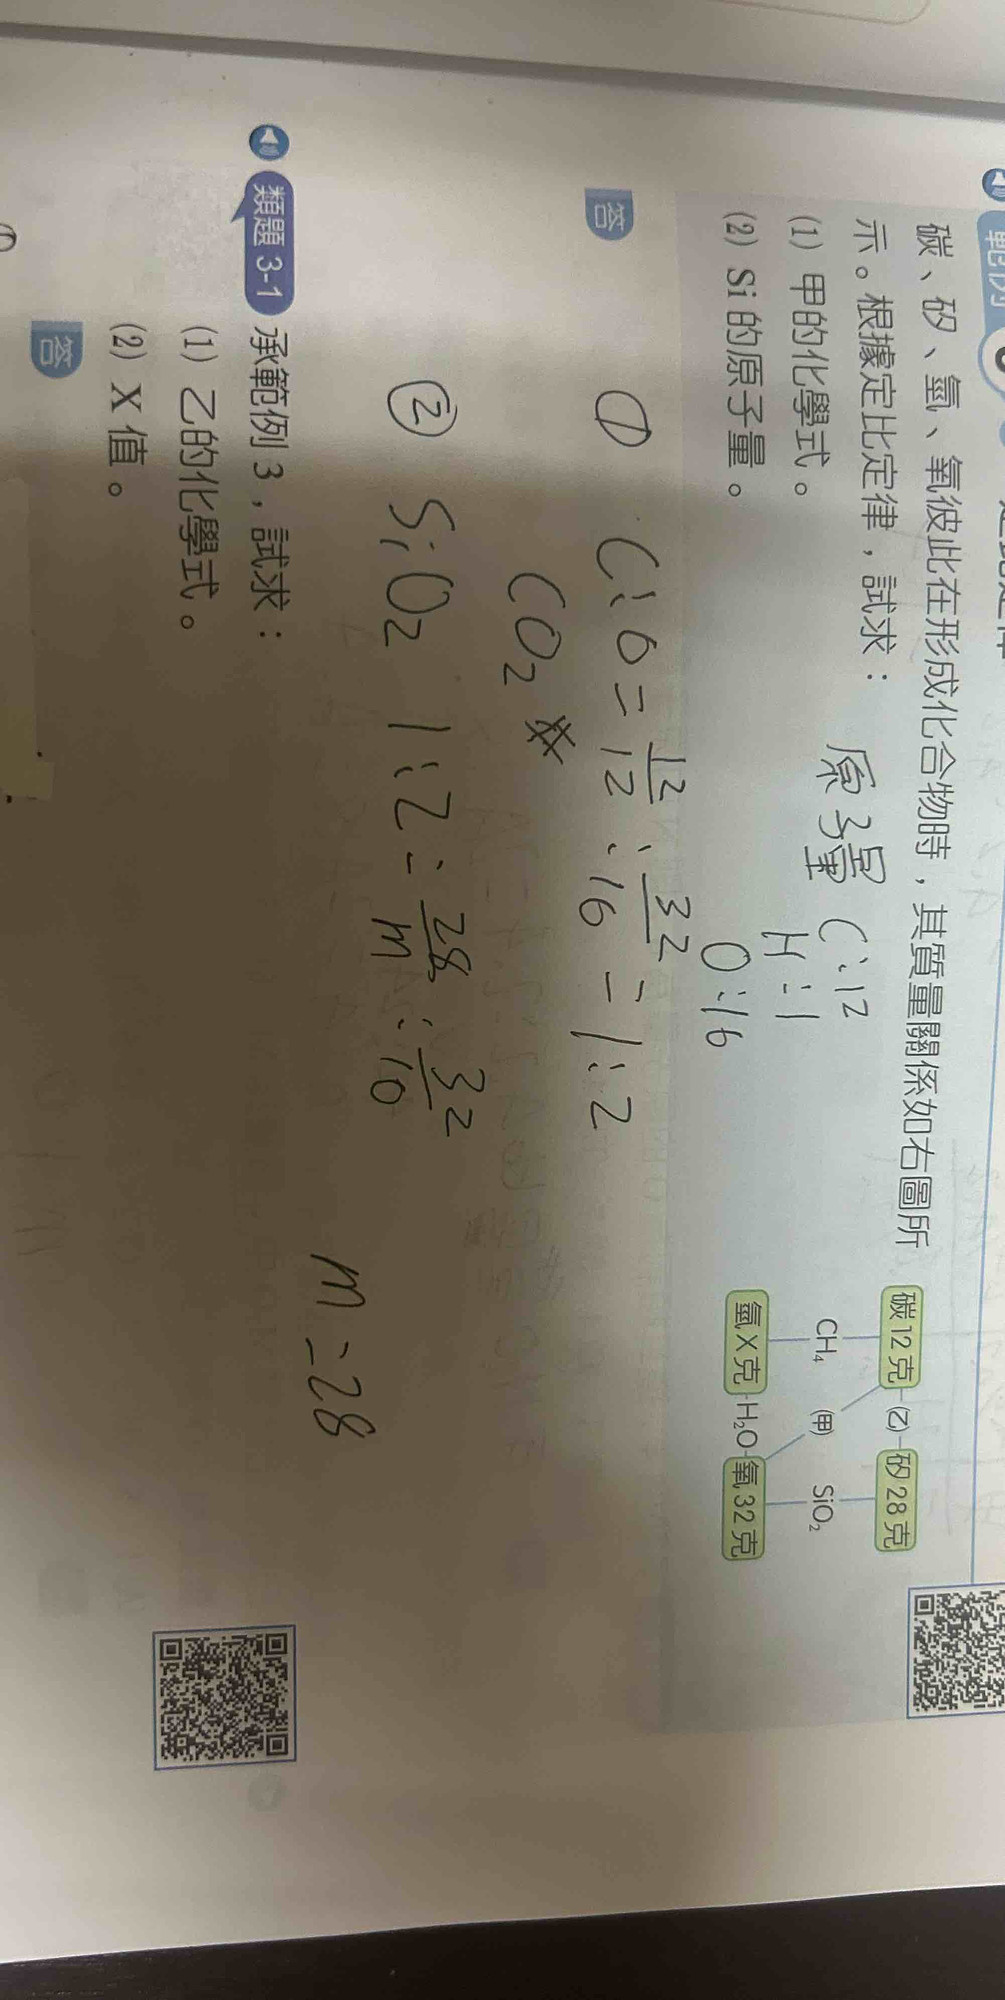 範例 3
碳、矽、氫、氧彼此在形成化合物時，其質量關係如右圖所
示。根據定比定律，試求：
(1) 甲的化學式。
(2) Si 的原子量。
原子量 C:12
H:1
O:16
碳12克 (乙) 矽28克
CH₄ (甲) SiO₂
氫X克 H₂O 氧32克
答
① C:O = 12/12 : 32/16 = 1:2
CO₂
② SiO₂ 1:2 = 28/m : 32/16
m = 28
類題 3-1 承範例 3，試求：
(1) 乙的化學式。
(2) X 值。
答
①